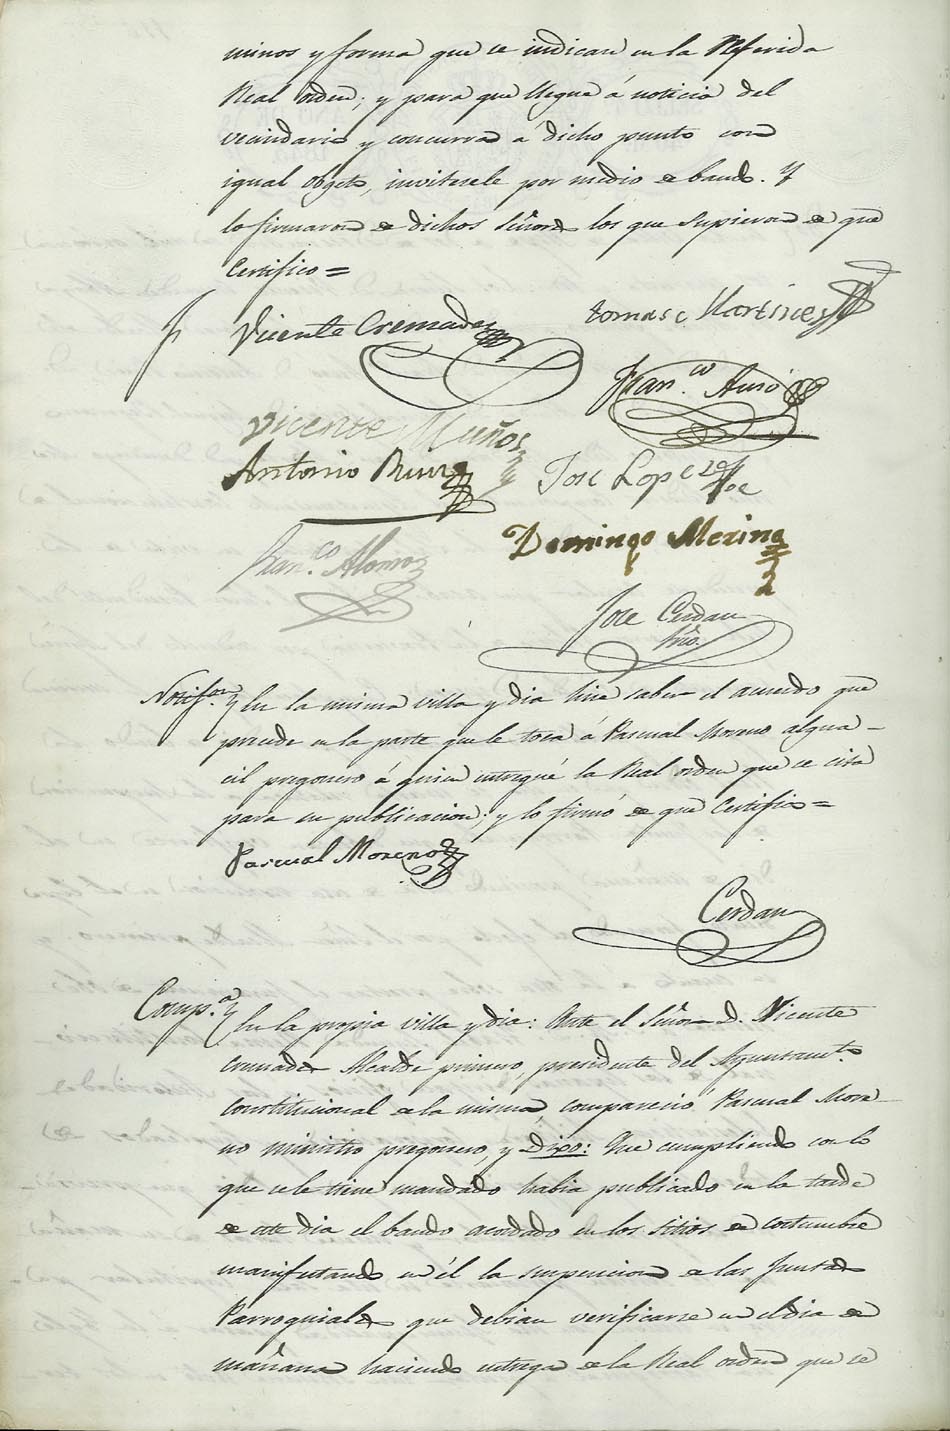 minos y forma que se indican en la Referida
Real orden; y para que llegue á noticia del
vecindario y concurra á dicho punto con
igual objeto, invitesele por medio de bando. Y
lo firmaron de dichos Señores los que supieron de que
Certifico =
Vicente Cremades
tomas Martines
Fran.co Auso
Vicente Muños
Antonio Ruiz
Jose Lopez
Domingo Merino
Fran.co Alonso
Jose Cerdan
Srio.
Notif.on
En la misma villa y dia hice saber el acuerdo que
precede en la parte que le toca á Pascual Moreno algua-
cil pregonero á quien entregué la Real orden que se cita
para su publicacion; y lo firmó de que Certifico =
Pascual Moreno
Cerdan
Comp.a
En la propia villa y dia: Ante el Señor D. Vicente
Cremades Alcalde primero, presidente del Ayuntam.to
Constitucional de la misma, comparecio Pascual More-
no ministro pregonero, y Dixo: Que cumpliendo con lo
que se le tiene mandado habia publicado en la tarde
de este dia el bando acordado en los sitios de costumbre
manifestando en él la suspencion de las Juntas
Parroquiales que debian verificarse en el dia de
mañana haciendo entrega de la Real orden que se